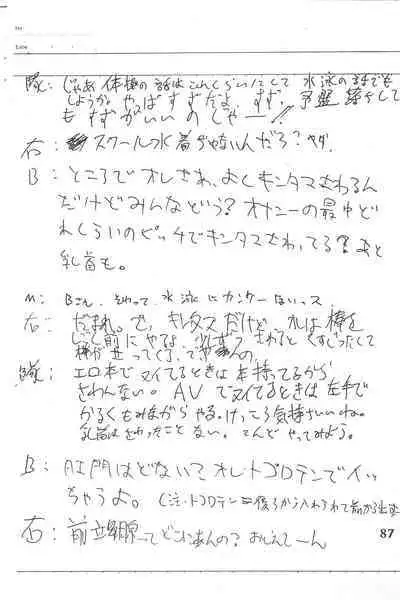 隊: じゃあ体操の話はこれくらいにして 水泳の話でも
しようか。やっぱすずだよ、すず。
もすずがいいのじゃー!!
右: スクール水着じゃないんだろ? ヤダ。
B: ところでオレさぁ、よくキンタマさわるん
だけどみんなどう? オナニーの最中ど
れくらいのピッチでキンタマさわってる? あと
乳首も。
M: Bさん、それって水泳にカンケーないっス
右: だまれ。で、キンタマだけど、オレは棒を
さわるとくすぐったくて
隊: エロ本でヌイてるときは本持ってるから
さわんない。AVでヌイてるときは左手で
かるくもみながらやる。けっこう気持ちいいね。
乳首はさわったことない。こんどやってみよう。
B: 肛門はどない? オレ、トコロテンでイッ
ちゃうよ。(注・トコロテン=後ろから入れられて前から出す
右: 前立腺ってどこにあんの? おしえてーん
87